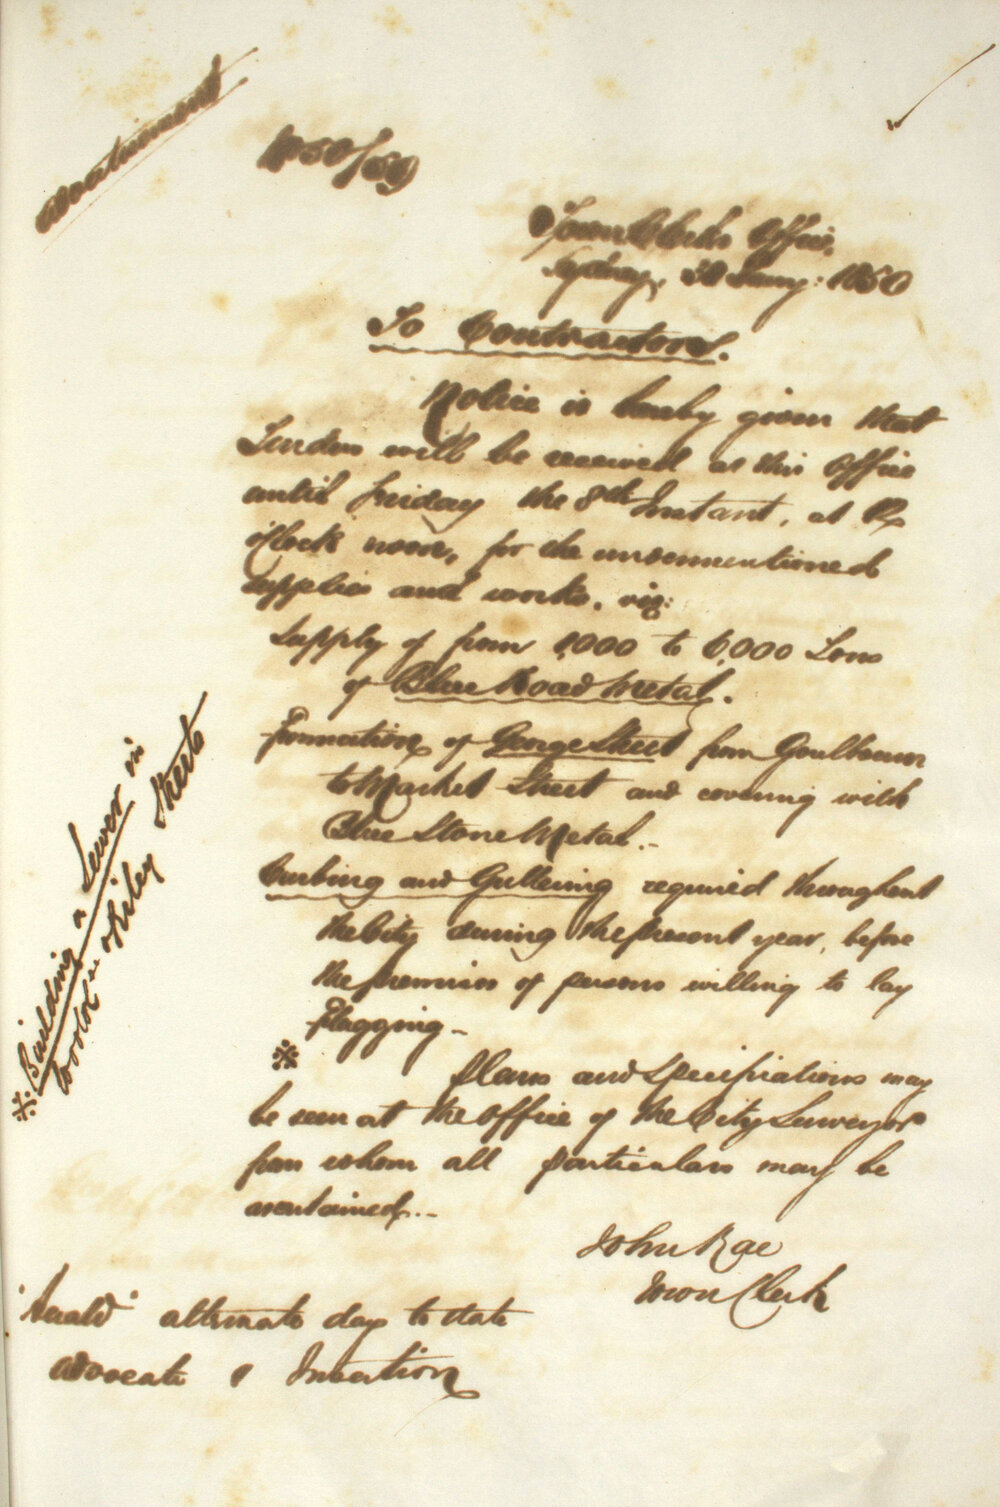 Advertisement
1850/59
Town Clerks Office,
Sydney, Jany: 1850
To Contractors.
Notice is hereby given that
Tenders will be received at this Office
until Friday the 8th Instant, at
o'Clock noon, for the undermentioned
supplies and works, viz:
Supply of from to 6,000 Tons
of Blue Road Metal.
Formation of George Street from Goulburn
to Market Street and covering with
Blue Stone Metal.-
Curbing and Guttering required throughout
the City during the present year, before
the premises of persons willing to lay
Flagging-
※
Plans and Specifications may
be seen at the Office of the City Surveyor
from whom all particulars may be
ascertained.-
John Rae
Town Clerk
※ Building a Sewer in
& Riley Streets
"Herald" alternate days to date
Advocate 1 Insertion